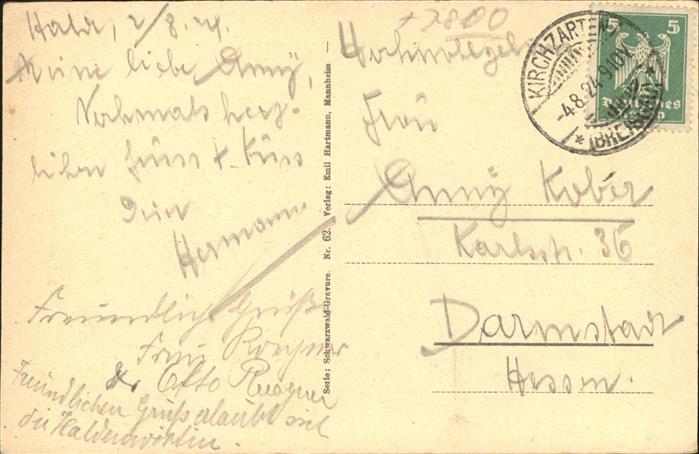 Halde, 2/8. 24.
Meine liebe Anny,
Nochmals herz-
lichen Gruss + Kuss
Dein
Hermann
Freundliche Grüße
Frau
Dr Otto
Freundlichen Gruß erlaubt sich
die Haldenwirtin.
Serie: Schwarzwald-Gravure. Nr. 62. Verlag: Emil Hartmann, Mannheim —
+ 7800
Frau
Anny Kober
Karlstr. 36
Darmstadt
Hessen.
KIRCHZARTEN
-4.8.24.9-10V
* (BREISGAU)
5 5
Deutsches
Reich